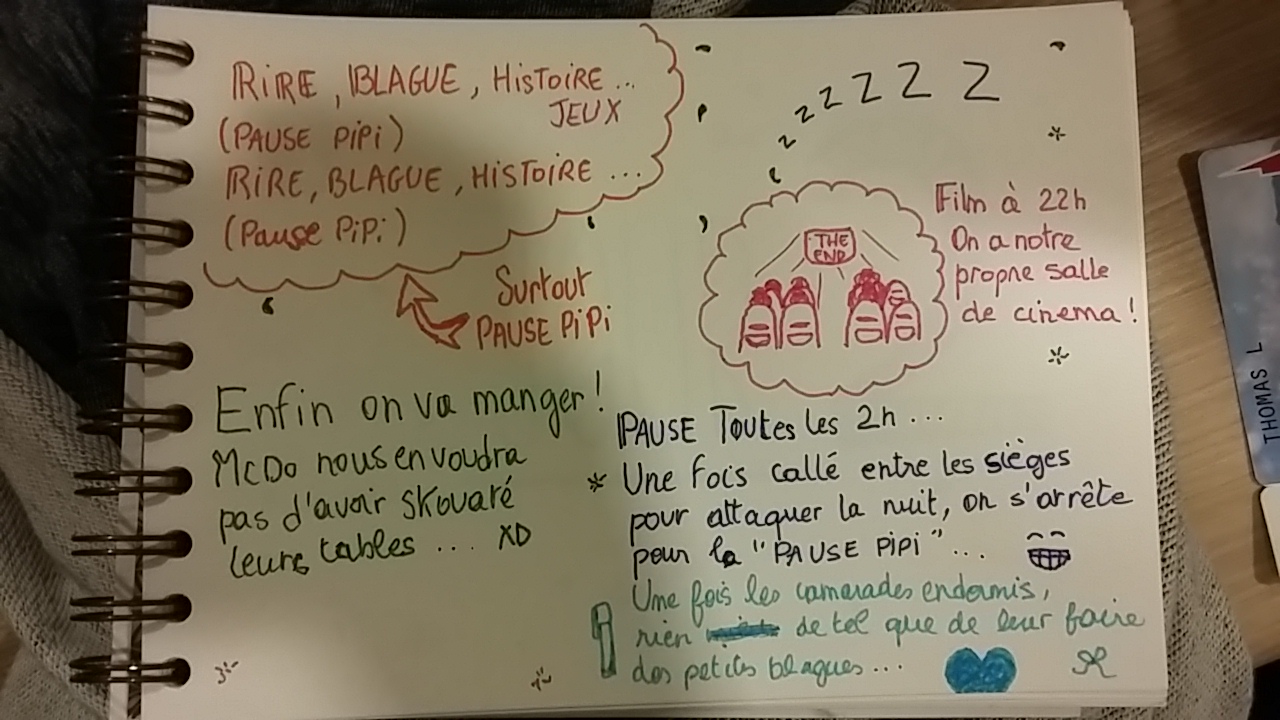 RIRE, BLAGUE, HiSTOiRE...
JEUX
(PAUSE PiPi)
RiRE, BLAGUE, HiSTOiRE ...
(Pause PiPi)
Surtout
PAUSE PiPi
Enfin on va manger!
McDo nous en voudra
pas d'avoir skouaré
leurs tables ... XD
z z z Z Z Z
THE
END
Film à 22h
On a notre
propre salle
de cinema!
PAUSE Toutes les 2h ...
* Une fois callé entre les sièges
pour attaquer la nuit, on s'arrête
pour la "PAUSE PiPi"...
Une fois les camarades endormis,
rien de tel que de leur faire
des petites blagues...
THOMAS L